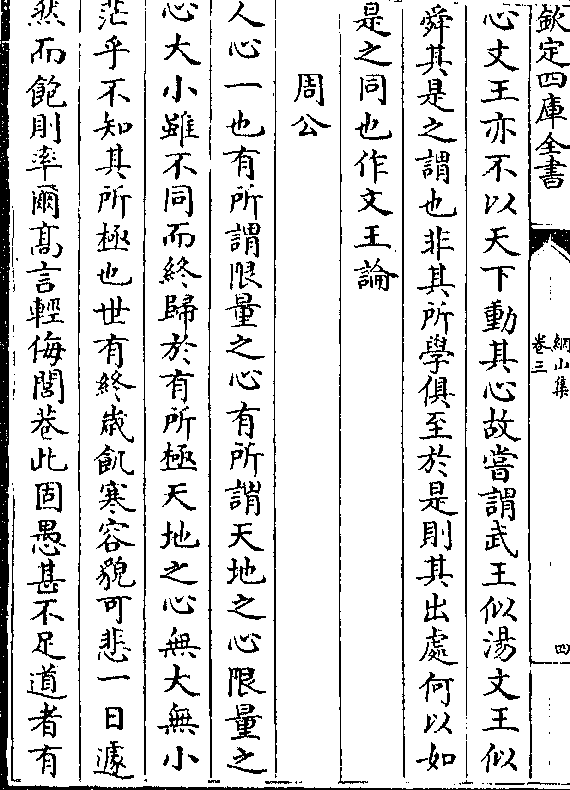 欽定四庫全書
網山集
卷三
四
心文王亦不以天下動其心故嘗謂武王似湯文王似
舜其是之謂也非其所學俱至於是則其出處何以如
是之同也作文王論
周公
人心一也有所謂限量之心有所謂天地之心限量之
心大小雖不同而終歸於有所極天地之心無大無小
茫乎不知其所極也世有終歲飢寒容貌可悲一日遽
然而飽則率爾髙言輕侮閭巷此固愚甚不足道者有